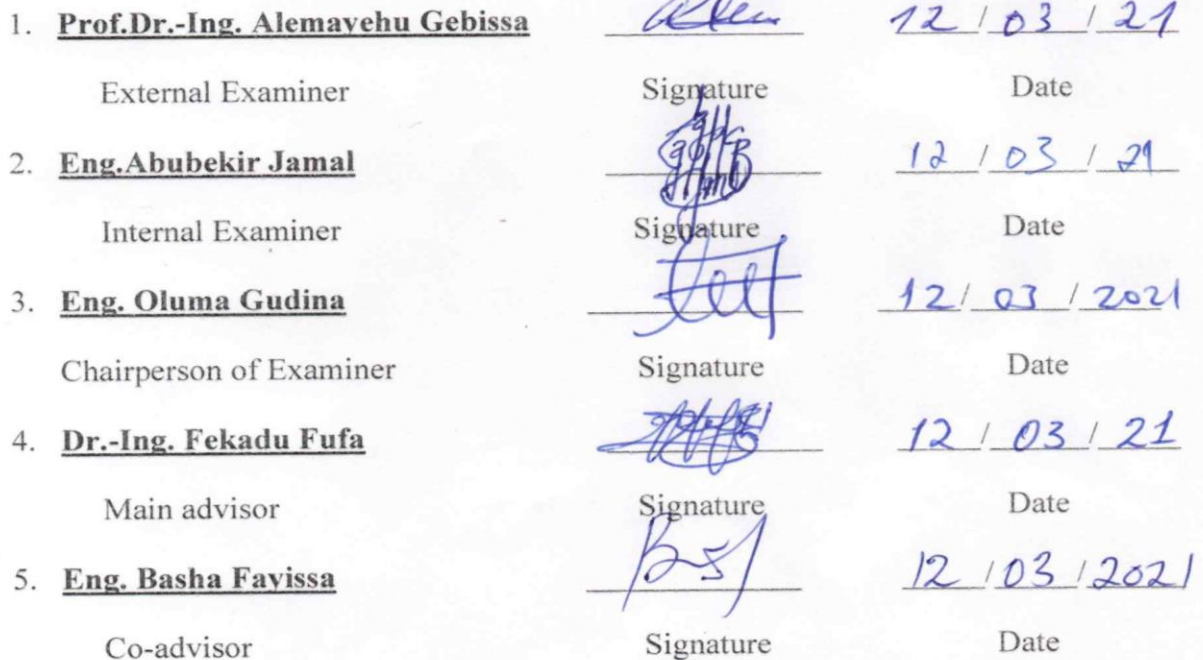 1. Prof.Dr.-Ing. Alemayehu Gebissa 12 / 03 / 21
External Examiner Signature Date
2. Eng.Abubekir Jamal 12 / 03 / 21
Internal Examiner Signature Date
3. Eng. Oluma Gudina 12 / 03 / 2021
Chairperson of Examiner Signature Date
4. Dr.-Ing. Fekadu Fufa 12 / 03 / 21
Main advisor Signature Date
5. Eng. Basha Fayissa 12 / 03 / 2021
Co-advisor Signature Date